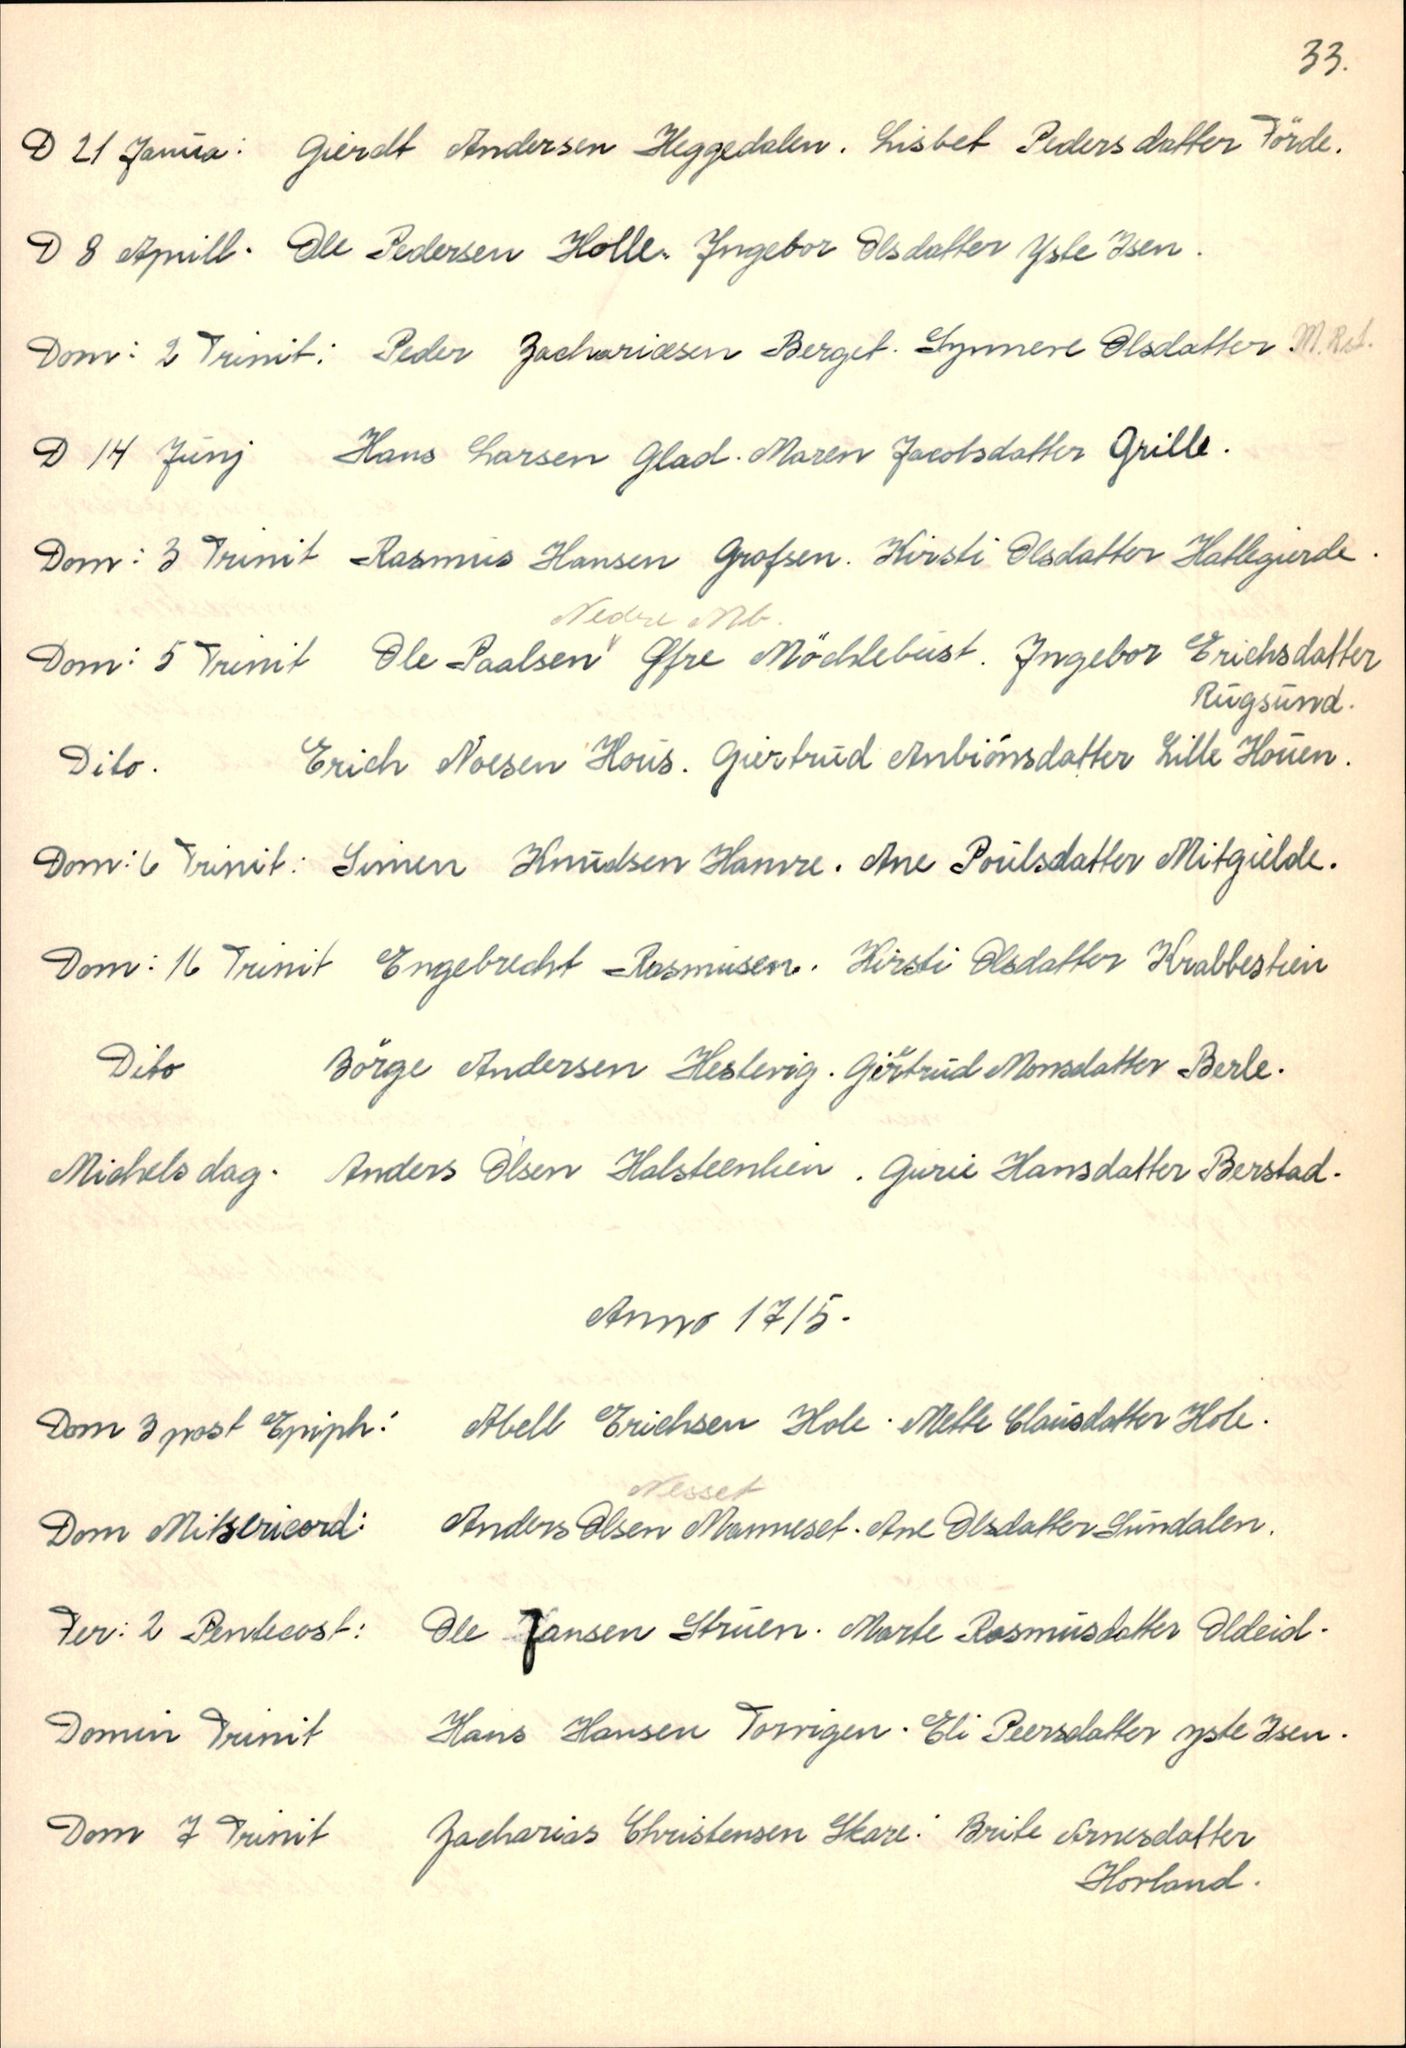 33.
D 21 Janua: Gierdt Andersen Heggedalen. Lisbet Pedersdatter Förde.
D 8 Aprill. Ole Pedersen Holle. Ingebor Olsdatter Yste Isen.
Dom: 2 Trinit: Peder Zachariæsen Berget. Synneve Olsdatter M. Rst.
D 14 Junj Hans Larsen Glad. Maren Jacobsdatter Grille.
Dom: 3 Trinit Rasmus Hansen Grofsen. Kirsti Olsdatter Hatlegierde.
Nedre Mb.
Dom: 5 Trinit Ole Paalsen Öfre Möchlebust. Ingebor Erichsdatter
Rugsund.
Dito. Erich Noesen Hous. Giertrud Anbiönsdatter Lille Houen.
Dom: 6 Trinit: Simen Knudsen Hamre. Ane Poulsdatter Mitgielde.
Dom: 16 Trinit Engebrecht Rasmusen. Kirsti Olsdatter Krabbestien
Dito Börge Andersen Hestevig. Giertrud Monsdatter Berle.
Michelsdag. Anders Olsen Holsteenlien. Gurie Hansdatter Berstad.
Anno 1715.
Dom 3 post Epiph: Abell Erichsen Hole. Mette Clausdatter Hole.
Nesset
Dom Mitsericord: Anders Olsen Manneset. Ane Olsdatter Sundalen.
Fer: 2 Pentecost: Ole Jansen Struen. Marte Rasmusdatter Oldeid.
Domin Trinit Hans Hansen Torvigen. Eli Peersdatter yste Isen.
Dom 7 Trinit Zacharias Christensen Skare. Brite Arnesdatter
Horland.